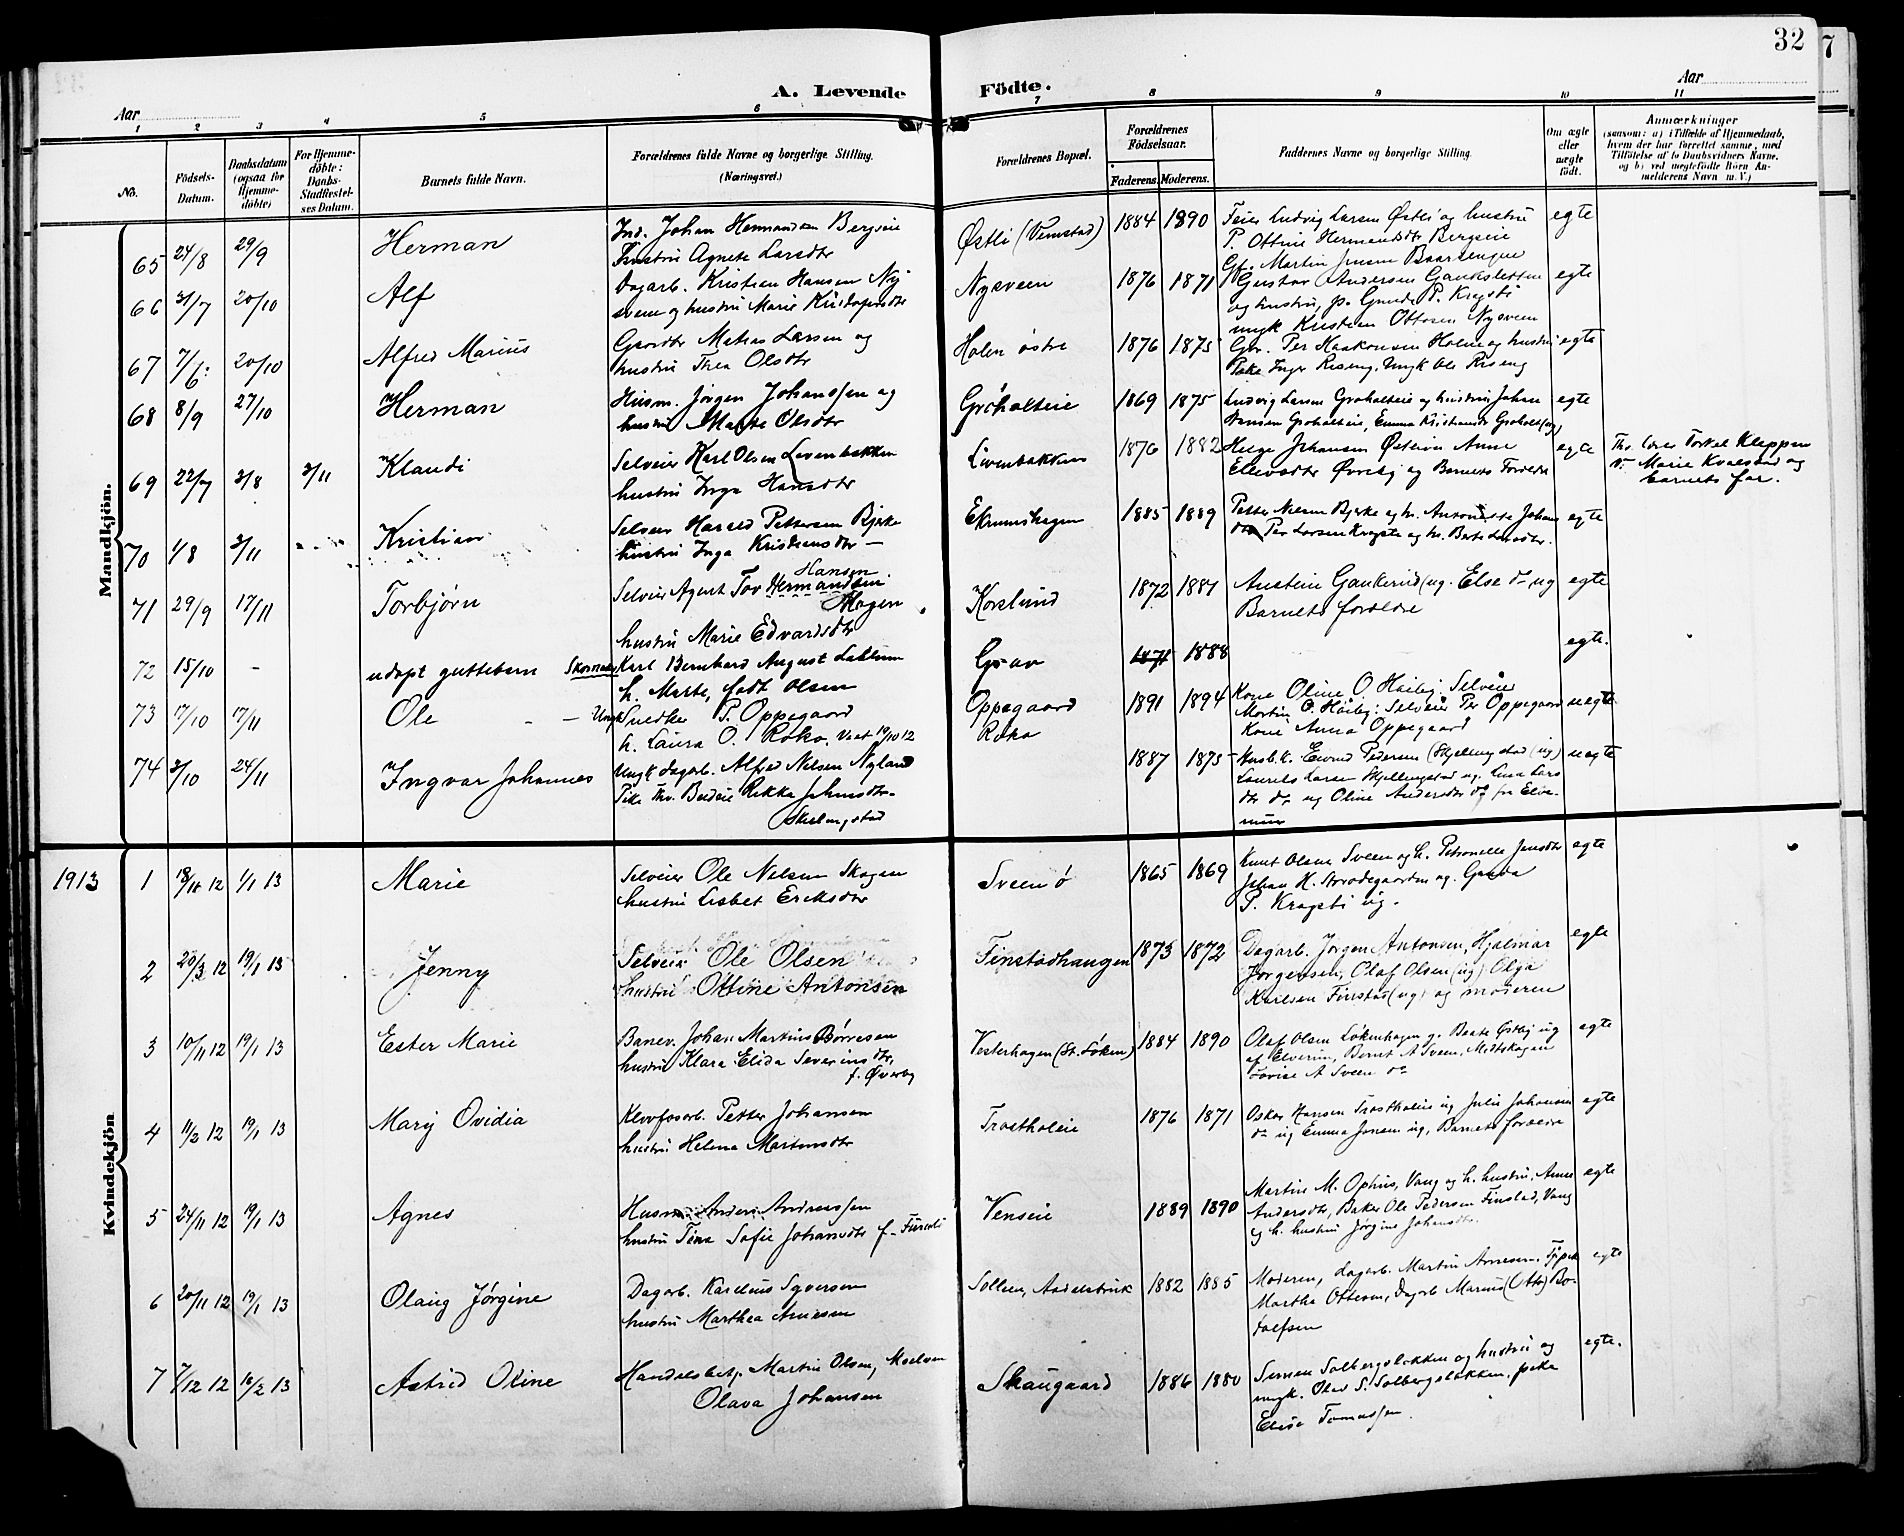 32
7
A. Levende Födte.
Aar
Aar
1 2 3 4 5 6 7 8 9 10 11
No.
Födsels-Datum.
Daabsdatum (ogsaa for Hjemme-döbte)
For Hjemme-döbte: Daabs-Stadfestel-ses Datum.
Barnets fulde Navn.
Forældrenes fulde Navne og borgerlige Stilling. (Næringsvei.)
Forældrenes Bopæl.
Forældrenes Födselsaar.
Faderens. Moderens.
Faddernes Navne og borgerlige Stilling.
Om ægte eller uægte födt.
Anmærkninger
(saasom: a) i Tilfælde af Hjemmedaab, hvem der har forrettet samme, med Tilföielse af to Daabsvidners Navne, og b) ved uegtefödte Börn Anmelderens Navn m. V.)
Mandkjön.
65 24/8 29/9 Herman
Johan Hermandsen Bergseie
hustru Agnete Larsdtr
Østli (Vemstad) 1884 1890
Feier Ludvig Larsen Østli og hustru
P. Ottine Hermandsdtr Bergseie
egte
66 31/7 20/10 Alf
Dagarb. Kristian Hansen Ny
sveen og hustru Marie Kristofersdtr
Nysveen 1876 1871
Gustav Andersen Gaukesletten
og hustru, p. Gunda P. Kragsti
ungk Kristian Ottosen Nysveen
egte
67 7/6 20/10 Alfred Marius
Gaardbr Matias Larsen og
hustru Thea Olsdtr
Holen østre 1876 1875
Gbr. Per Haakonsen Holen og hustru
Pike Inger Riseng, Ungk Ole Riseng
egte
68 8/9 27/10 Herman
Husm. Jörgen Johanssen og
hustru Marte Olsdtr
Groholteie 1869 1875
Ludvig Larsen Groholteie og hustru Johan
Hansen Groholteie, Emma Kristiansdtr Groholt (ug)
egte
69 22/7 3/8 3/11 Klaudi
Selveier Karl Olsen Løvenbakken
hustru Inga Hansdtr
Livenbakken 1876 1882
Helge Johansen Østlien Anne
Ellevsdtr Øvreby og Barnets Foreldre
egte
Th. lærer Torkel Kleppen
v. Marie Kvalsund og
barnets far.
70 1/8 3/11 Kristian
Selveier Harald Pettersen Bjerke
hustru Inga Kristiansdtr
Ekrumshagen 1885 1889
Petter Nilsen Bjerke og h. Antonette Johans
Per Larsen Kragste og h. Berte Larsdtr.
egte
71 29/9 17/11 Torbjørn
Hansen
Selveier Agent Tor Hermandsen
Hagen
hustru Marie Edvardsdtr
Korslund 1872 1881
Austine Gaukerud (ug. Else do ug
Barnets foreldre
egte
72 15/10 - udøpt guttebarn
Skomaker Karl Bernhard August Lallum
h. Marte, født Olsen
Grav 1871 1888
egte.
73 17/10 17/11 Ole
Ungk Snedker P. Oppegaard
h. Laura O. Roko. Viet 19/10 12
Oppegaard
Roko
1891 1894
Kone Oline O. Haiby: Selveier
Martin O. Haiby: Selveier Per Oppegaard
Kone Anna Oppegaard
uegte.
74 3/10 24/11 Ingvar Johannes
Ungk dagarb. Alfred Nilsen Nyland
Pike Thv. Budeie Rikka Johnsdtr
Skjelingstad
1887 1875
Husb.k. Eivind Pedersen Skjellingstad (ug)
Laurits Larsen Skjellingstad ug. Lina Lars
dtr do ug Oline Andersdtr do fra Elve-
rum
uegte
Kvindekjön
1913
1 18/11 12 1/1 13 Marie
Selveier Ole Nilsen Skogen
hustru Lisbet Eriksdtr
Sveen ø 1865 1869
Knut Olsen Sveen og h. Petronelle Jensdtr
Johan H. Strodegaarden ug. Gunda
P. Kragsti ug.
egte
2 20/3 12 19/1 13 Jenny
Selveier Ole Olsen
hustru Ottine Antonsen
Finstadhaugen 1873 1872
Dagarb. Jørgen Antonsen, Hjalmar
Jørgensen, Olaf Olsen (ug) Olga
Karlsen Finstad (ug) og moderen
egte
3 10/11 12 19/1 13 Ester Marie
Banev. Johan Martinus Børresen
hustru Klara Elida Severinsdtr,
f. Øverby
Vesterhagen (St. Løken) 1884 1890
Olaf Olsen Løkenhagen g. Beate Østby ug
af Elverum, Bernt A Sveen, Midtskogen
Lovise A Sveen do
egte
4 11/2 12 19/1 13 Mary Ovidia
Klovfosarb. Petter Johansen
hustru Helena Martinsdtr
Trostholeie 1876 1871
Oskar Hansen Trostholeie ug Julie Johansen
do ug Emma Jonsen ug, Barnets foreldre
egte
5 24/11 12 19/1 13 Agnes
Husm. Anders Andreassen
hustru Tina Sofie Johansdtr f. Furuli
Venseie 1889 1890
Martin M. Ophus, Vang og h. hustru, Anne
Andersdtr, Baker Ole Pedersen Finstad, Vang
og h. hustru Jørgine Johansdtr.
egte
6 20/11 12 19/1 13 Olaug Jørgine
Dagarb. Karelius Syversen
hustru Marthea Arnesen
Sollien, Aadalsbruk 1882 1885
Moderen, dagarb. Martin Arnesen, Pike
Martha Ottesen, Dagarb Marius (Otto) Bo-
dolfsen
egte
7 7/12 12 16/2 13 Astrid Oline
Handelsbetj. Martin Olsen, Moelven
Olava Johansen
Skaugaard 1886 1880
Simen Solbergsløkken og hustru og
ungk. Olav S. Solbergsløkken, pike
Elise Tomassen.
egte.